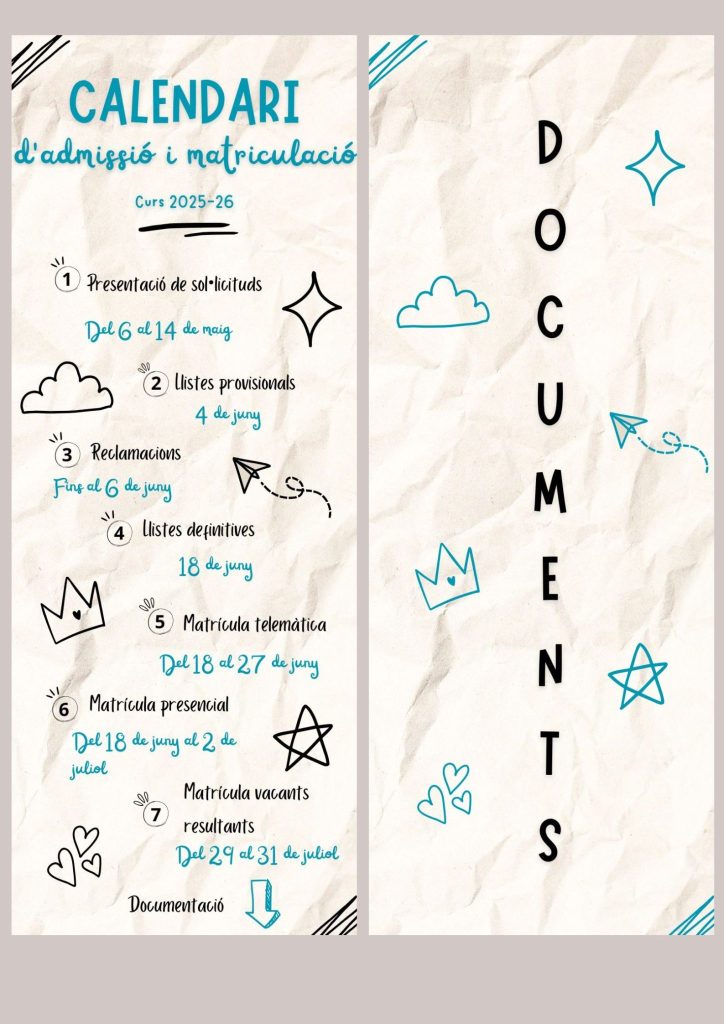 CALENDARI
d'admissió i matriculació
Curs 2025-26
1 Presentació de sol•licituds
Del 6 al 14 de maig
2 Llistes provisionals
4 de juny
3 Reclamacions
Fins al 6 de juny
4 Llistes definitives
18 de juny
5 Matrícula telemàtica
Del 18 al 27 de juny
6 Matrícula presencial
Del 18 de juny al 2 de
juliol
7 Matrícula vacants
resultants
Del 29 al 31 de juliol
Documentació
DOCUMENTS